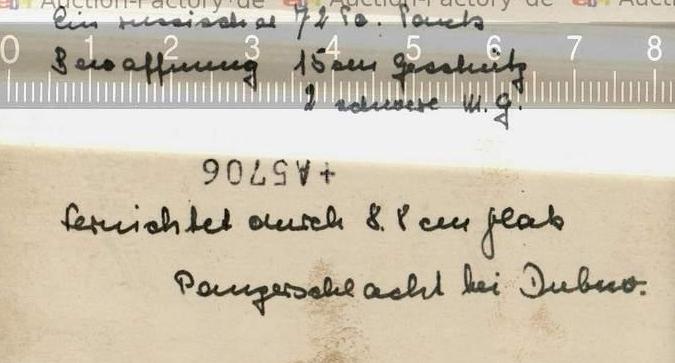 Auction-Factory.de Auction-Factory.de Aucti
Ein russischer 72 To. Tank
0 1 2 3 4 5 6 7 8
Bewaffnung 15cm Geschütz
2 schwere M.G.
+A5706
Vernichtet durch 8.8 cm Flak
Panzerschlacht bei Dubno.